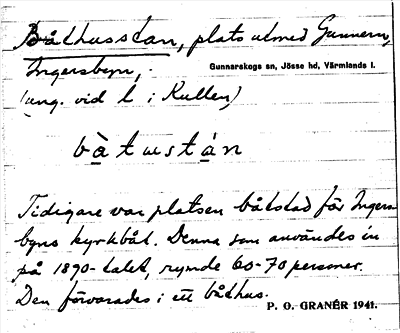 Båthusstan, plats utmed Gunnern,
Ingersbyn,.
Gunnarskogs sn, Jösse hd, Värmlands l.
(ung. vid l i Kullen)
bàtustàn
Tidigare var platsen båtstad för Ingers-
byns kyrkbåt. Denna som användes in
på 1890-talet, rymde 60-70 personer.
Den förvarades i ett båthus.
P. O. GRANÉR 1941.